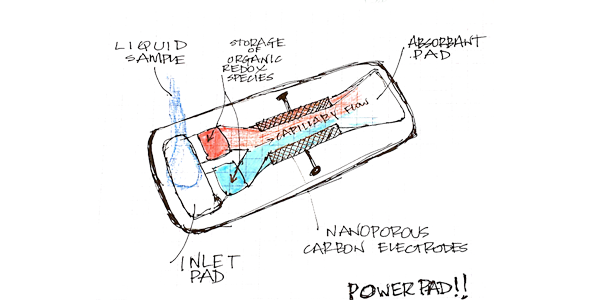 LIQUID
SAMPLE
STORAGE
OF
ORGANIC
REDOX
SPECIES
ABSORBANT
PAD
CAPILLARY FLOW
NANOPOROUS
CARBON ELECTRODES
INLET
PAD
POWERPAD!!